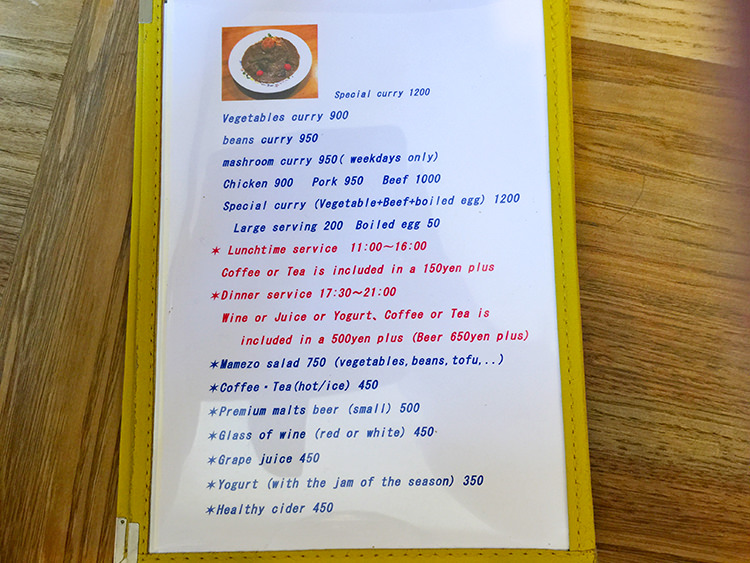 Special curry 1200
Vegetables curry 900
beans curry 950
mashroom curry 950( weekdays only)
Chicken 900 Pork 950 Beef 1000
Special curry (Vegetable+Beef+boiled egg) 1200
Large serving 200 Boiled egg 50
✶ Lunchtime service 11:00～16:00
Coffee or Tea is included in a 150yen plus
✶Dinner service 17:30～21:00
Wine or Juice or Yogurt、Coffee or Tea is
included in a 500yen plus (Beer 650yen plus)
✶Mamezo salad 750 (vegetables,beans,tofu,..)
✶Coffee・Tea(hot/ice) 450
✶Premium malts beer (small) 500
✶Glass of wine (red or white) 450
✶Grape juice 450
✶Yogurt (with the jam of the season) 350
✶Healthy cider 450